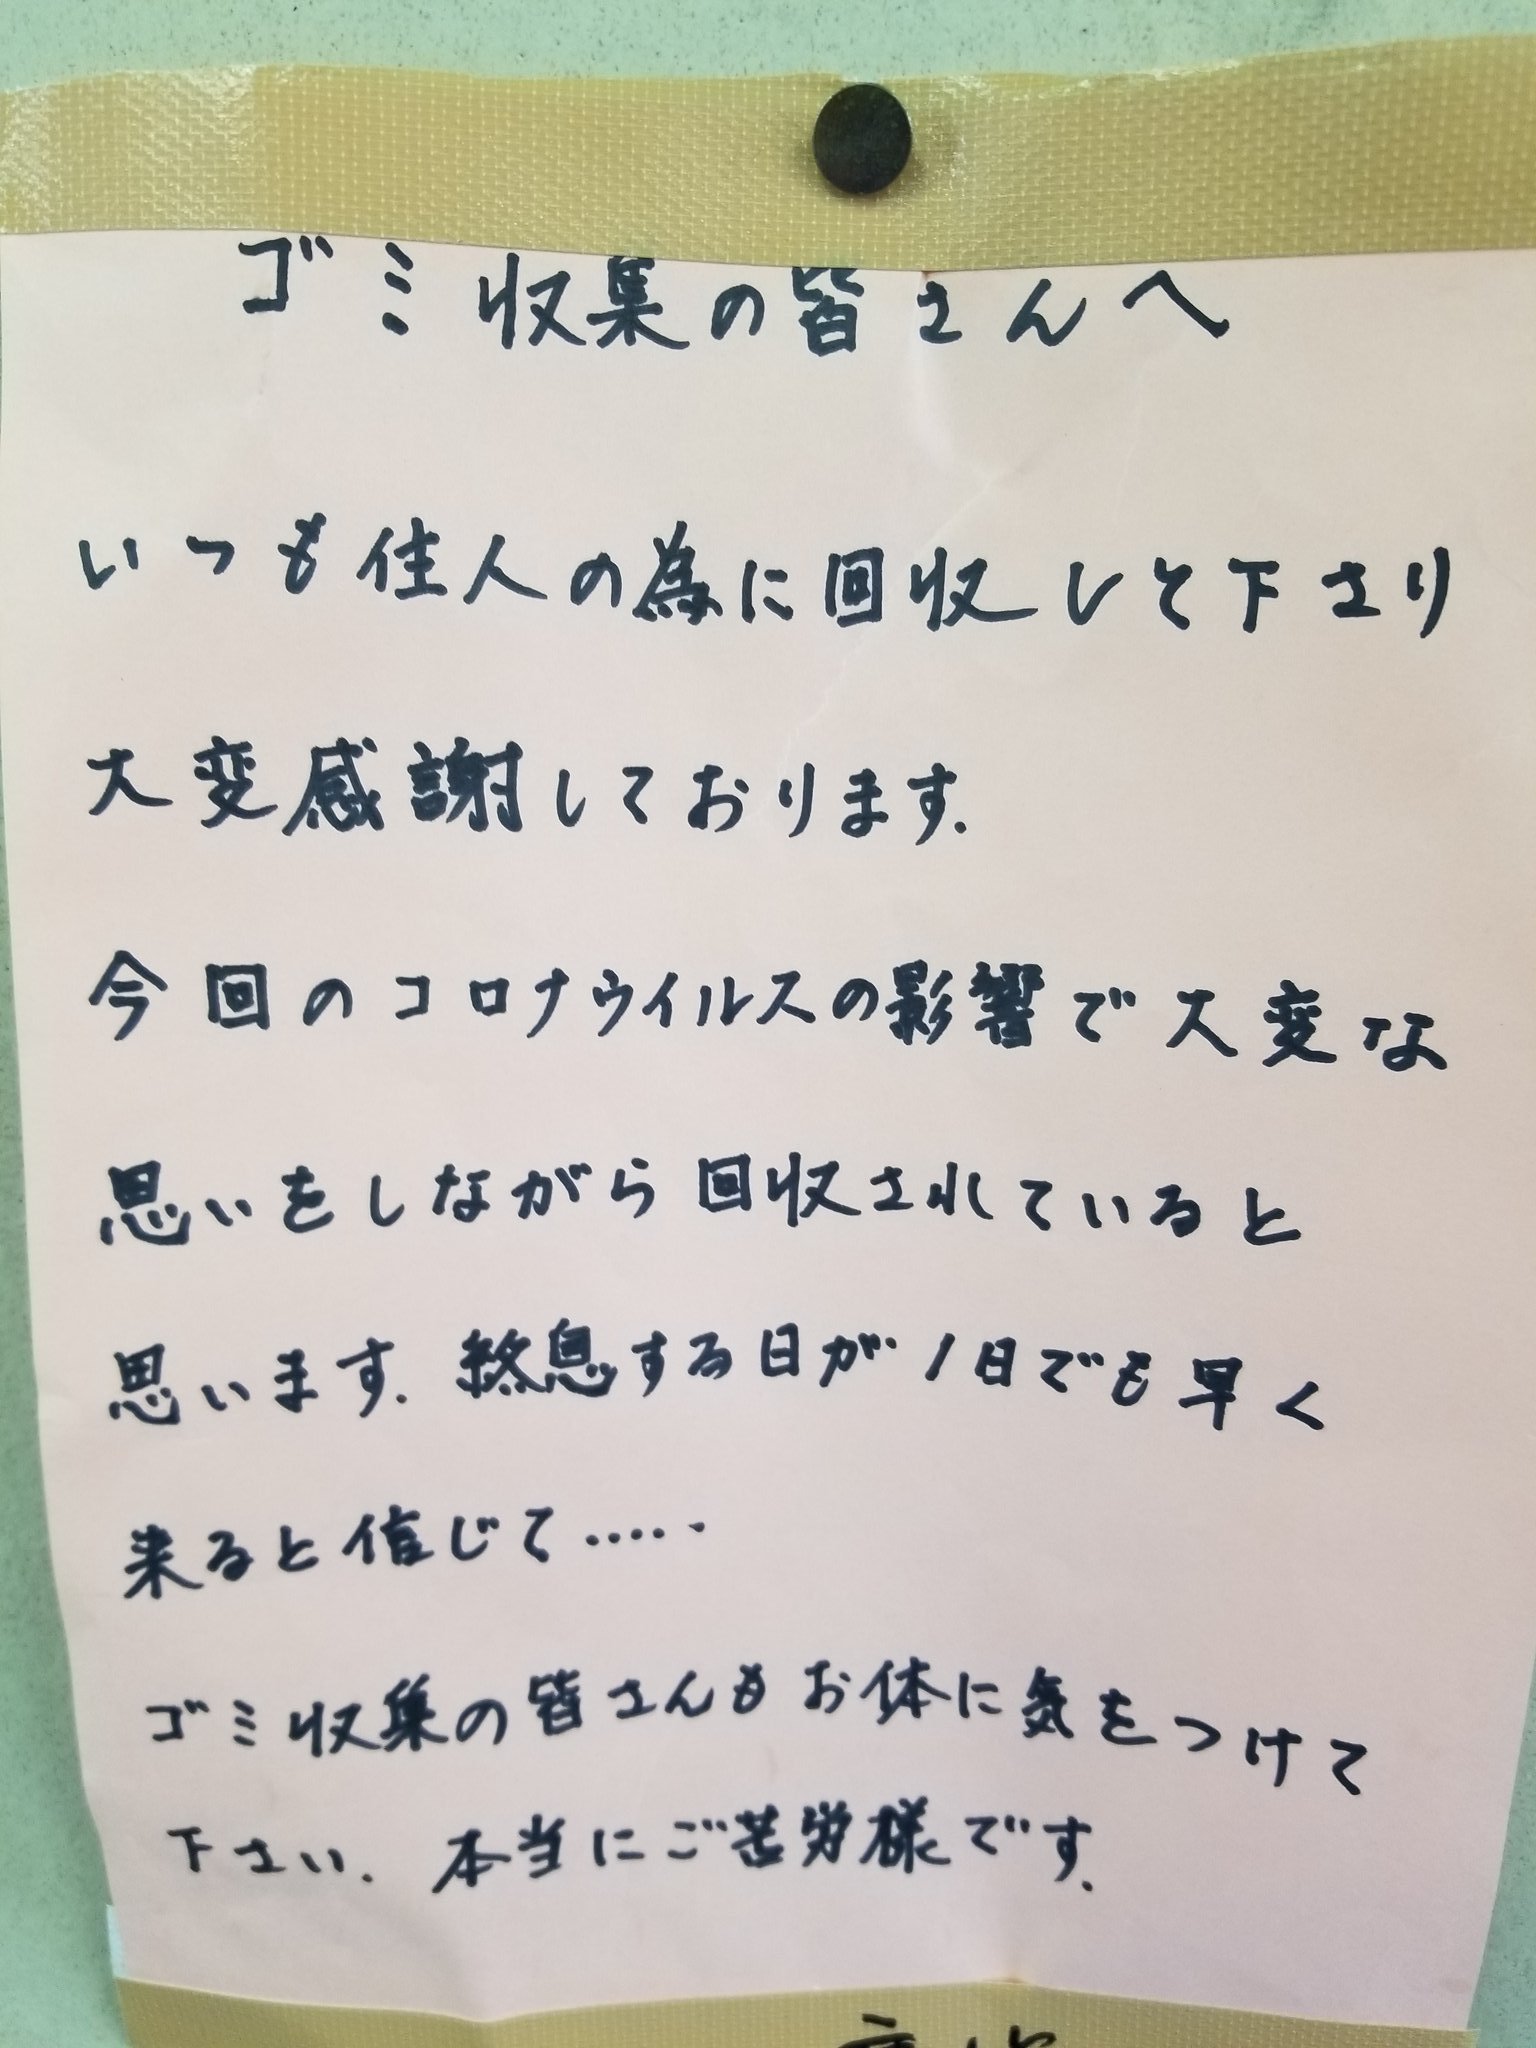 ゴミ収集の皆さんへ
いつも住人の為に回収して下さり
大変感謝しております.
今回のコロナウイルスの影響で大変な
思いをしながら回収されていると
思います.終息する日が1日でも早く
来ると信じて.....
ゴミ収集の皆さんもお体に気をつけて
下さい.本当にご苦労様です.